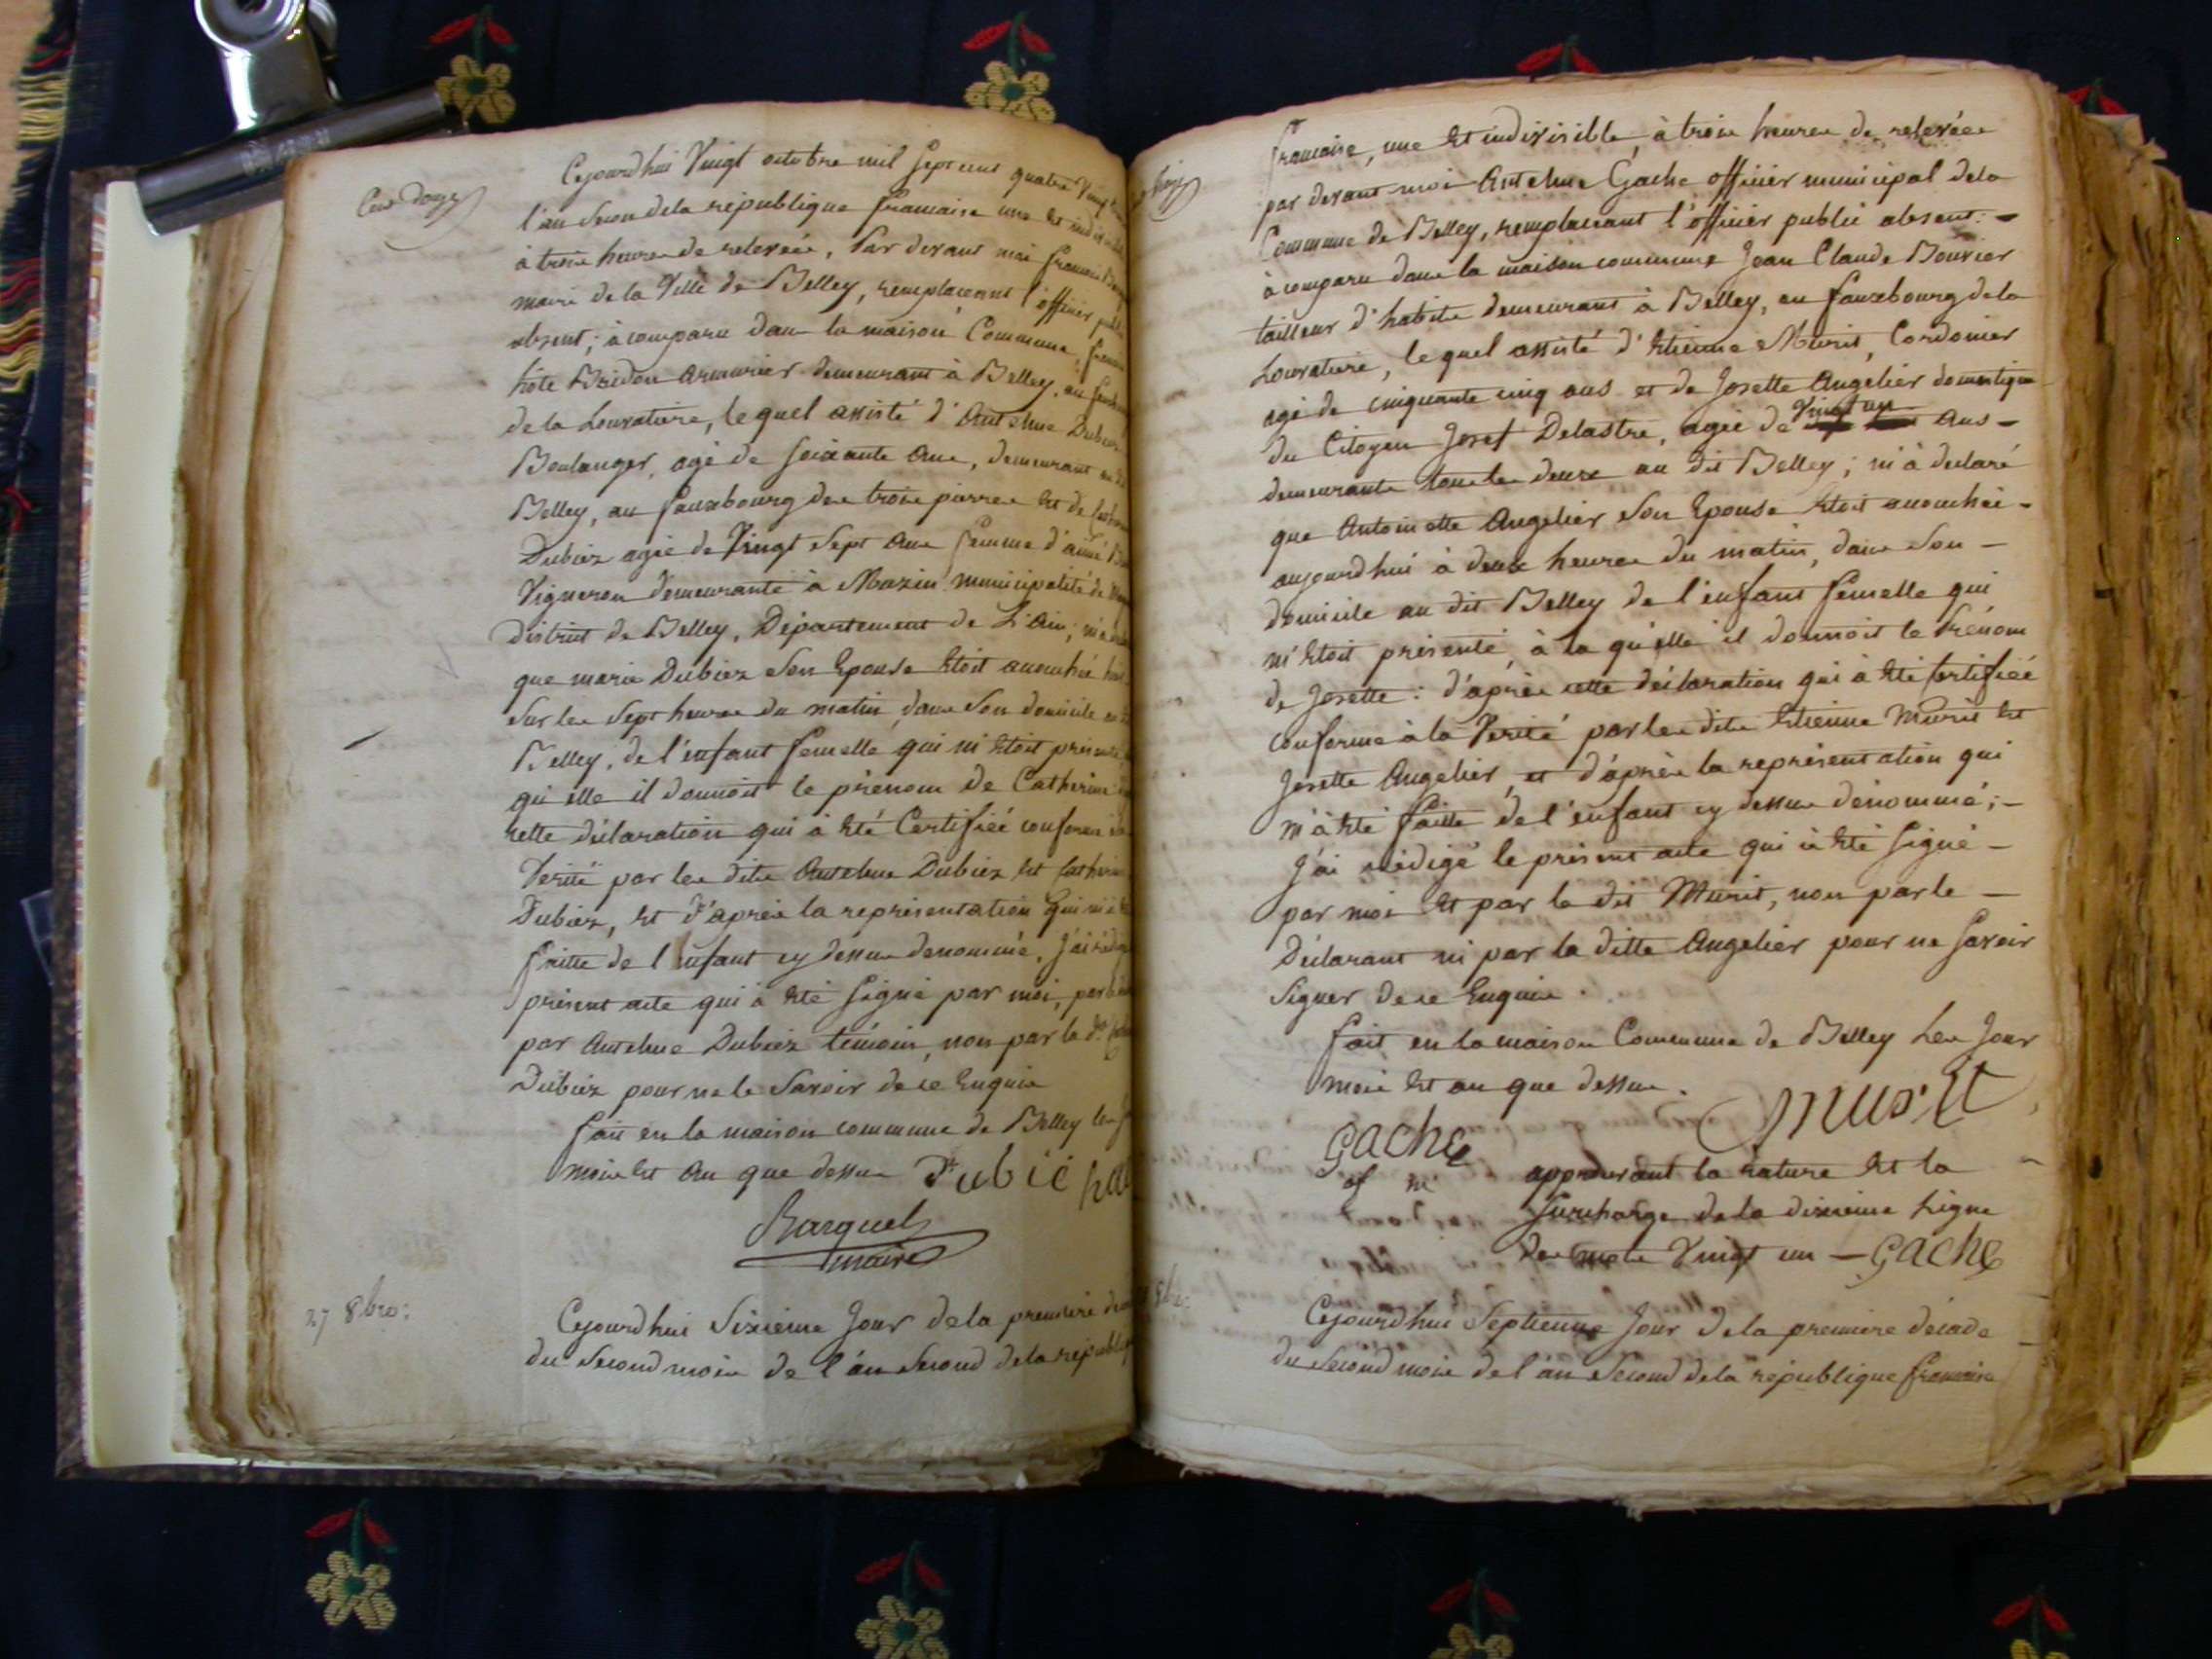 Cent Douze
Cejourd'hui Vingt octobre mil sept cent quatre Vingt
l'an Second de la république francaise une et indivisible
à trois heures de relevée, Par devant moi francois
maire de la Ville de Belley, remplacant l'officier public
absent; à comparu dans la maison Commune,
Bridon armurier demeurant à Belley, au
de la Louvatiere, le quel assisté d'Antelme Dubiez
Boulanger, agé de soixante Ans, demeurant au dit
Belley, au fauxbourg des trois pierres et de Catherine
Dubiez agée de Vingt Sept Ans femme d'aimé
Vigneron demeurante à Mazin municipalité de
District de Belley, Département de L'Ain,
que marie Dubiez Son Epouse étoit accouchée
Sur les Sept heures du matin, dans Son domicile
Belley, de l'enfant femelle qui m'étoit présenté
qu'elle il donnoit le prénom de Catherine
cette déclaration qui à été Certifiée conforme à la
Verité par les dits Antelme Dubiez et Catherine
Dubiez, et d'après la représentation qui m'à été
faitte de l'enfant cy dessus denommé, J'ai rédigé
présent acte qui à été signé par moi, par le
par Antelme Dubiez témoin, non par la de
Dubiez pour ne le Savoir de ce Enquis
fait en la maison commune de Belley les
mois et An que dessus Dubié
Barquet
maire
27 8bre:
Cejourd'hui Sixieme Jour de la premiere
du Second mois de l'an Second de la république
francaise, une et indivisible, à trois heures de relevée
par devant moi Antelme Gache officier municipal de la
Commune de Belley, remplacant l'officier public absent: —
à comparu dans la maison commune Jean Claude Bouvier
tailleur d'habits demeurant à Belley, au fauxbourg de la
Louvatiere, le quel assisté d'Etienne Murit, Cordonier
agé de cinquante cinq ans et de Josette Angelier domestique
du Citoyen Josef Delastre, agée de Vingt un Ans —
demeurants tous les deux au dit Belley; m'à declaré
que Antoinette Angelier Son Epouse étoit accouchée —
aujourd'hui à deux heures du matin, dans Son —
domicile au dit Belley de l'enfant femelle qui
m'étoit présenté, à la qu'elle il donnoit le Prénom
de Josette: d'après cette déclaration qui à été certifiée
conforme à la Verité par les dits Etienne Murit et
Josette Angelier, et d'après la représentation qui
m'à été faitte de l'enfant cy dessus dénommé; —
J'ai rédigé le présent acte qui à été signé —
par moi et par le dit Murit, non par le —
Déclarant ni par la ditte Angelier pour ne Savoir
Signer de ce Enquis.
fait en la maison Commune de Belley Les Jour
mois et an que dessus.
murit
Gache
of m
approuvant la rature et la
surcharge de la dixieme Ligne
des mots Vingt un — Gache
Cejourd'hui Septieme Jour de la premiere décade
du Second mois de l'an Second de la république francaise